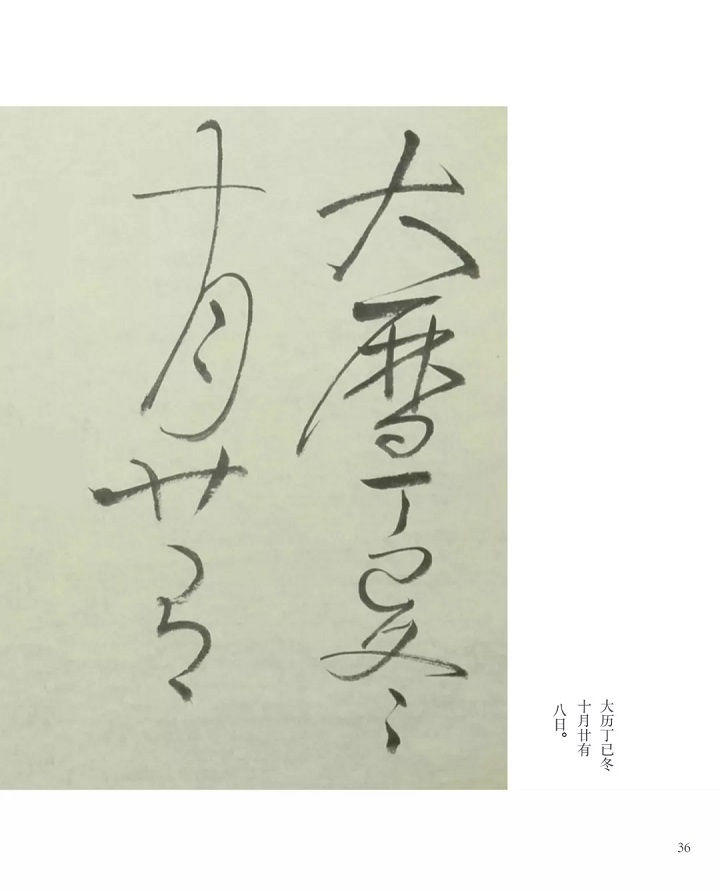 大曆丁巳冬
十月廿有
大历丁巳冬
十月廿有
八日。
36